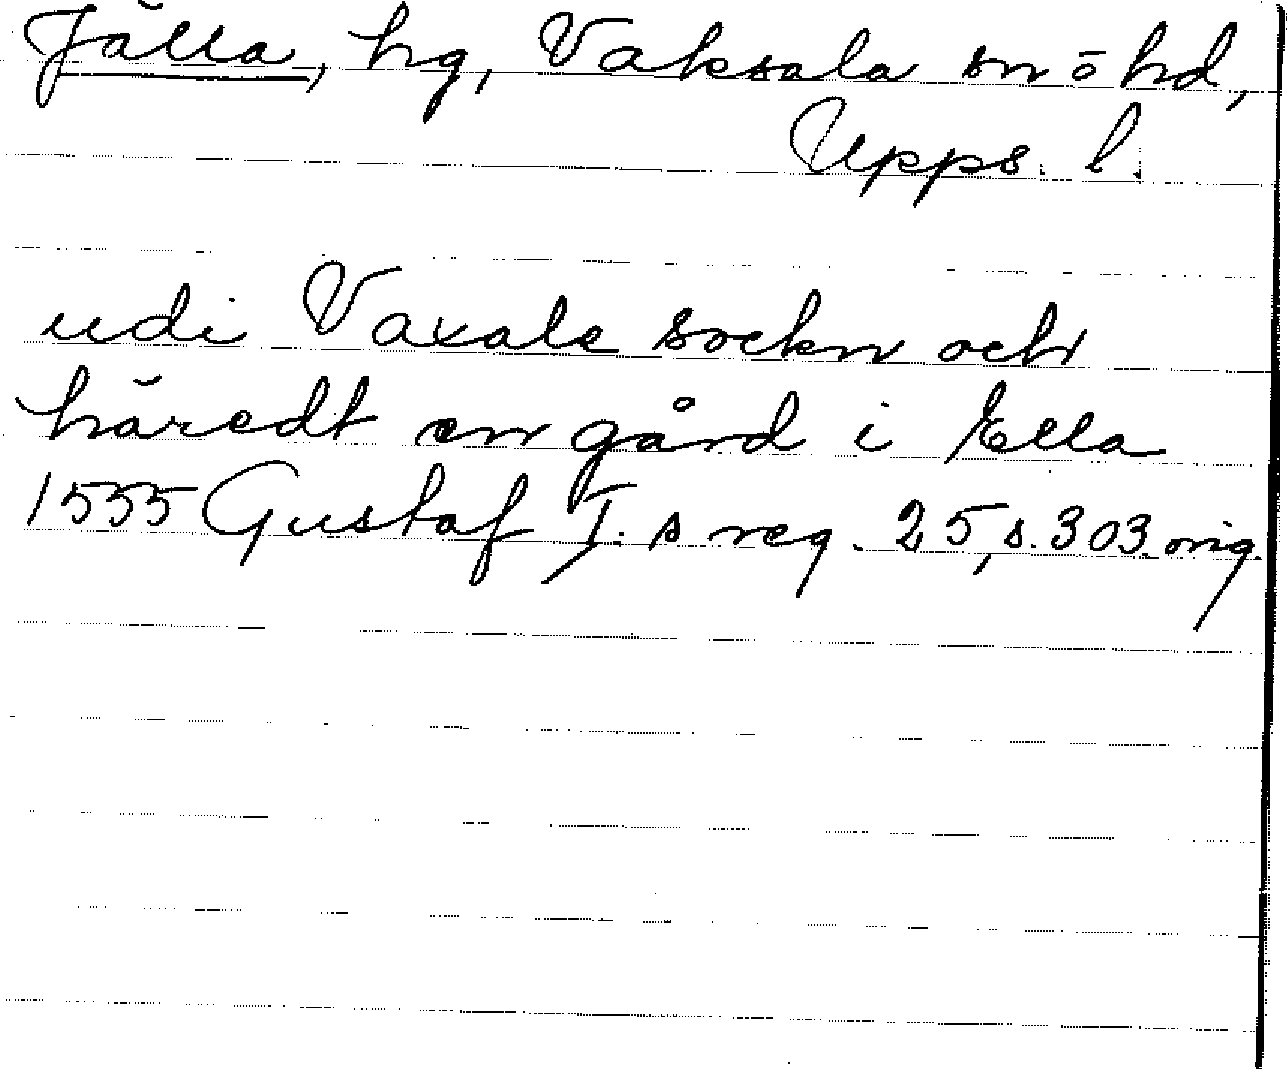 Jälla, hg, Vaksala sn o hd,
Upps. l.
udi Vaxale sockn och
häredt en gård i Ella
1555 Gustaf I. s reg. 25, s. 303. orig.